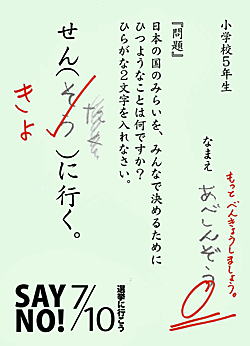 小学校5年生
なまえ
あべしんぞう
もっとべんきょうしましょう。
『問題』
日本の国のみらいを、みんなで決めるために
ひつようなことは何ですか?
ひらがな2文字を入れなさい。
せん(そう)に行く。
きょ
SAY
NO!
7/10
選挙に行こう